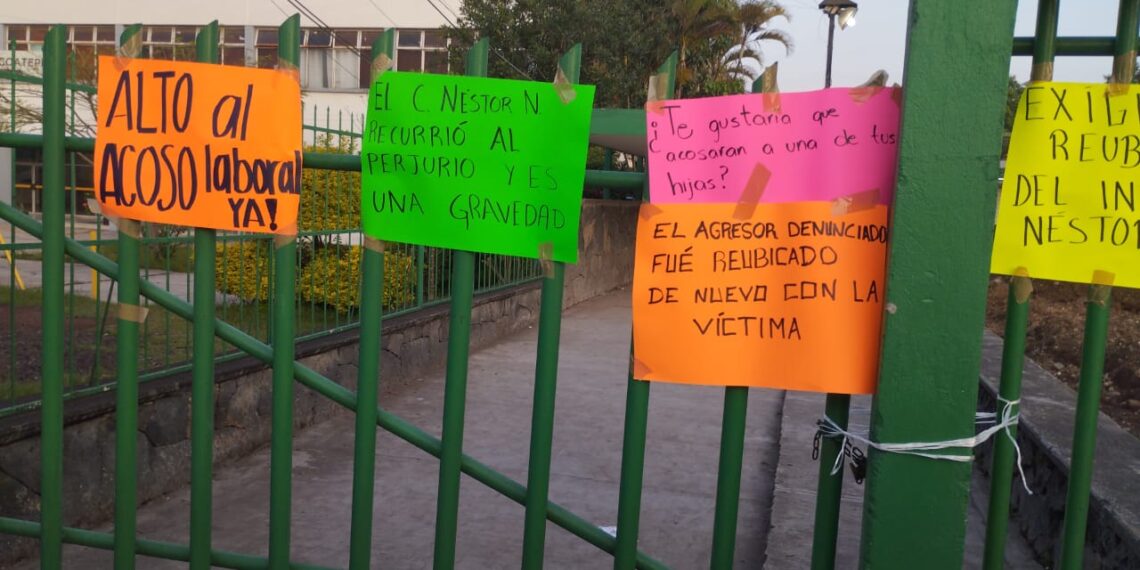 ALTO al
ACOSO laboral
YA!
EL C. NÉSTOR N.
RECURRIÓ AL
PERJURIO Y ES
UNA GRAVEDAD
¿Te gustaría que
acosaran a una de tus
hijas?
EL AGRESOR DENUNCIADO
FUÉ REUBICADO
DE NUEVO CON LA
VÍCTIMA
EXIGI
REUB
DEL IN
NÉSTOR